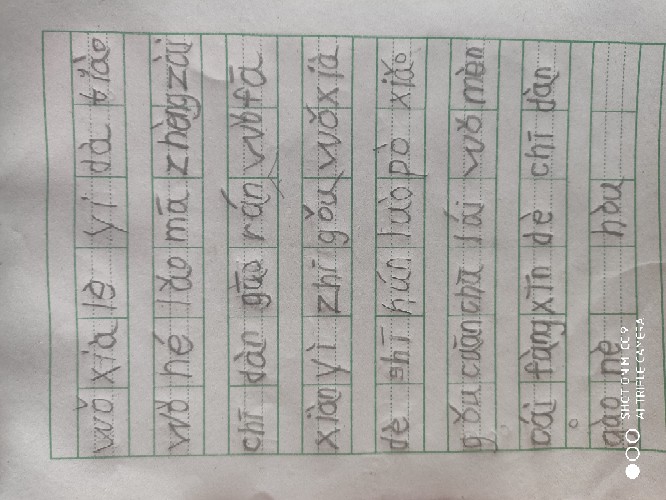 wǒ xià lè yí dà tiào
wǒ hé lǎo mā zhèng zài
chī dàn gāo rán wǒ fā
xiàn yì zhī gǒu wǒ xià
dè shī hún luò pò xiǎo
gǒu cuān chū lái wǒ mèn
cái fàng xīn dè chī dàn
gāo nè hòu
SHOT ON MI CC 9
AI TRIPLE CAMERA